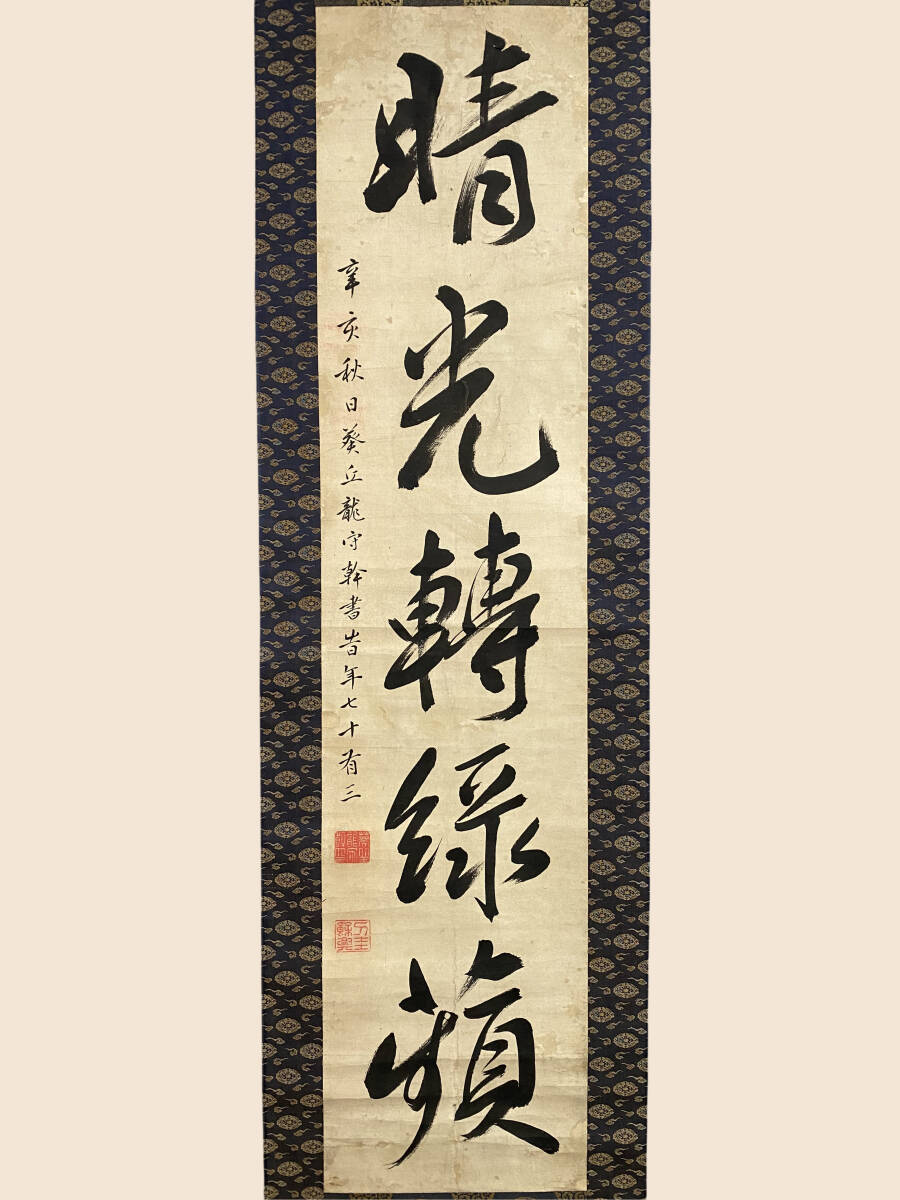 晴光轉綠蘋
辛亥秋日葵丘龍守幹書旹年七十有三